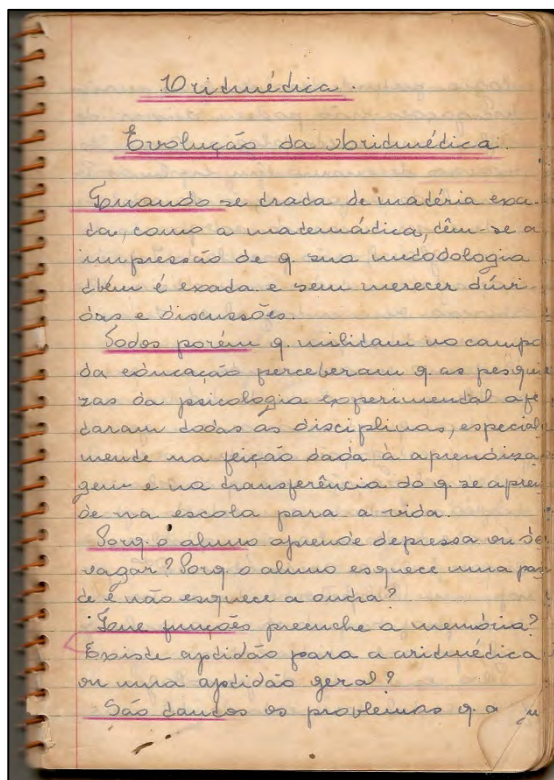 Aritmética.
Evolução da Aritmética.
Quando se trata de matéria exa-
ta, como a matemática, têm-se a
impressão de q. sua metodologia
tbém é exata e sem merecer dúvi-
das e discussões.
Todos porém q. militam no campo
da educação perceberam q. as pesqui
zas da psicologia experimental afe
taram todas as disciplinas, especial
mente na feição dada à aprendiza
gem e na transferência do q. se apren
de na escola para a vida.
Porq. o aluno aprende depressa ou de
vagar? Porq. o aluno esquece uma par
te e não esquece a outra?
Que funções preenche a memória?
Existe aptidão para a aritmética
ou uma aptidão geral?
São tantos os problemas q. a